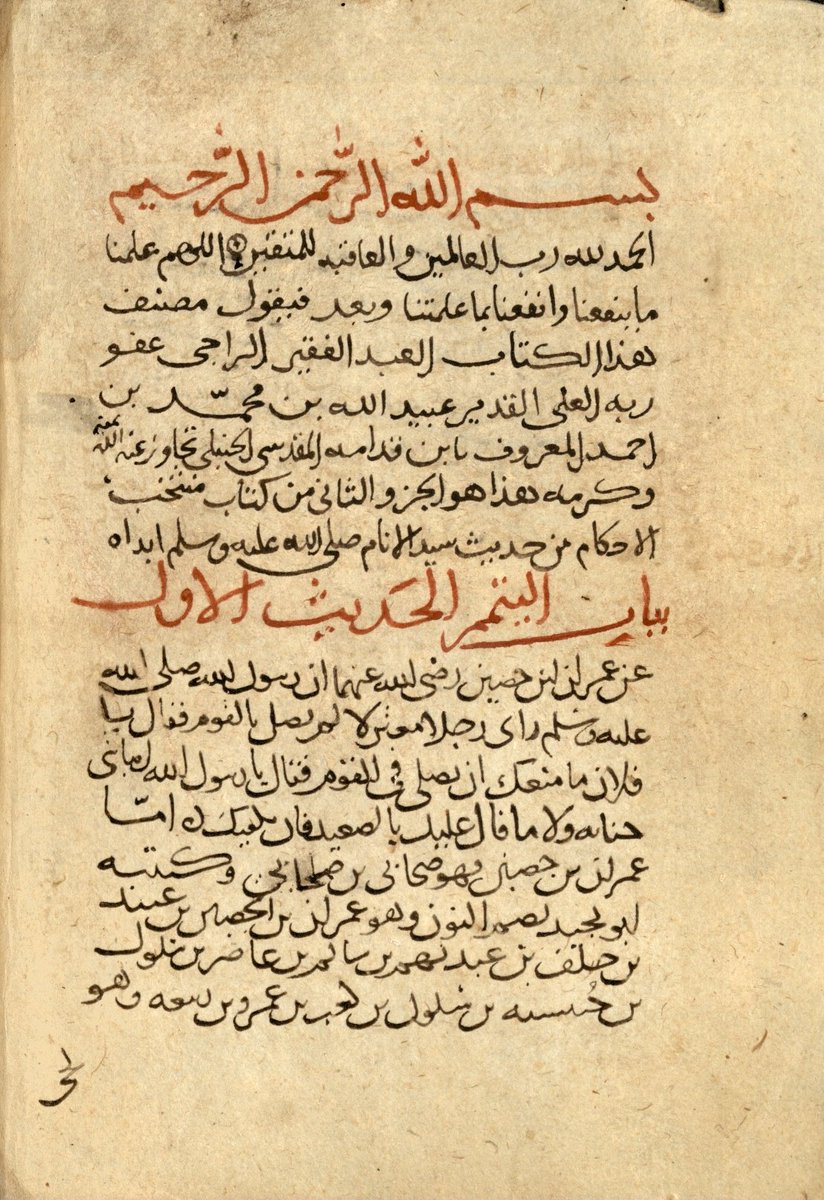 بسم الله الرَّحمن الرَّحيم
الحمد لله رب العالمين والعاقبه للمتقين اللهم علمنا
ما ينفعنا وانفعنا بما علمتنا وبعد فيقول مصنف
هذا الكتاب العبد الفقير الراجى عفو
ربه العلى القدير عبيد الله بن محمّد بن
احمد المعروف بابن قدامه المقدسى الحنبلى تجاوز الله عنه بمنه
وكرمه هذا هو الجزو الثانى من كتاب منتخب
الاحكام من حديث سيد الانام صلى الله عليه وسلم ابداه
بيان التيمم الحَديث الاول
عن عمران ابن حصين رضى الله عنهما ان رسول الله صلى الله
عليه وسلم راى رجلا معتزلا لم يصل بالقوم فقال يا
فلان ما منعك ان تصلى فى القوم فقال يا رسول الله اصابتنى
جنابه ولا ما قال عليك بالصعيد فان يكفيك ه امّا
عمران بن حصين فهو صحابى بن صحابى وكنيته
ابو نجيد بضم النون وهو عمران بن الحصين بن عبيد
بن خلف بن عبد نهم بن سالم بن عاضر بن سلول
بن حُبشيه بن سلول بن كعب بن عمرو بن ربيعه وهو